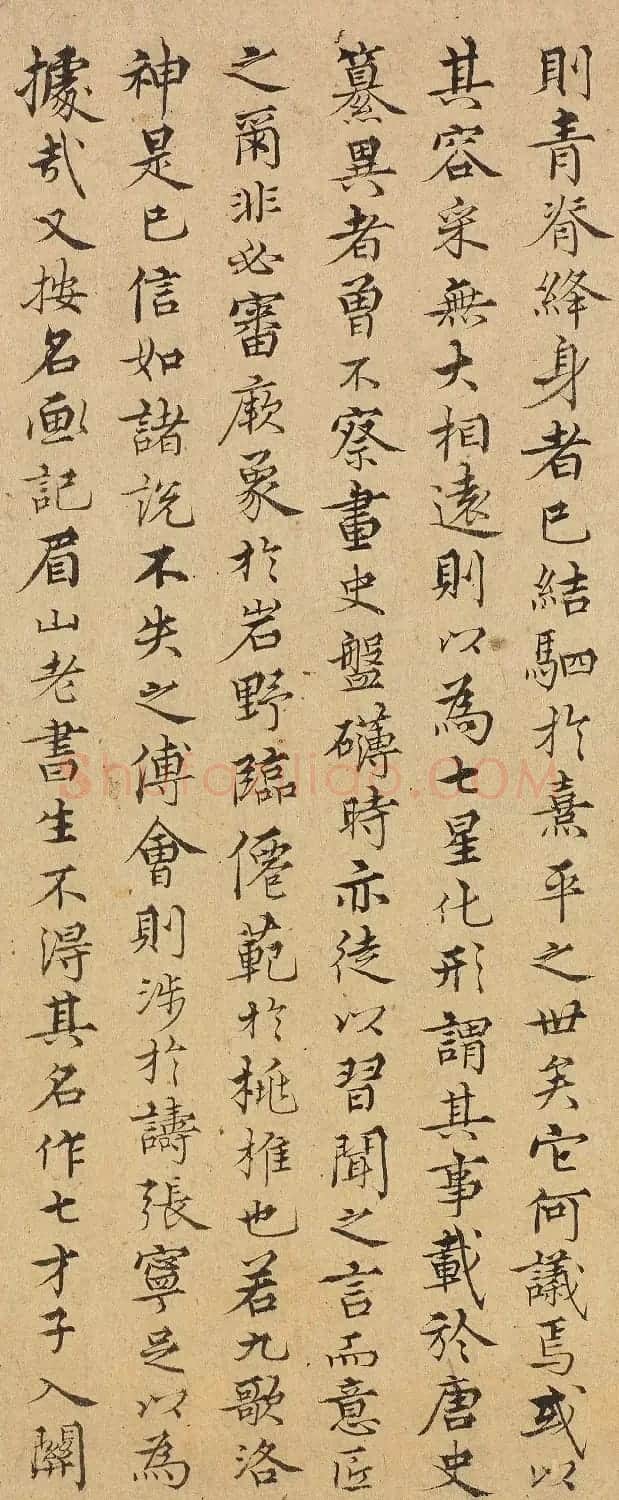 則青脊絳身者已結駟於熹平之世矣它何議焉或以
其容采無大相遠則以為七星化形謂其事載於唐史
纂異者曽不察畫史盤礴時亦徒以習聞之言而意匠
之爾非必審厥象於岩野臨僊範於桃椎也若九歌洛
神是已信如諸説不失之傅會則渉於譸張寧足以為
據哉又按名畫記眉山老書生不得其名作七才子入關